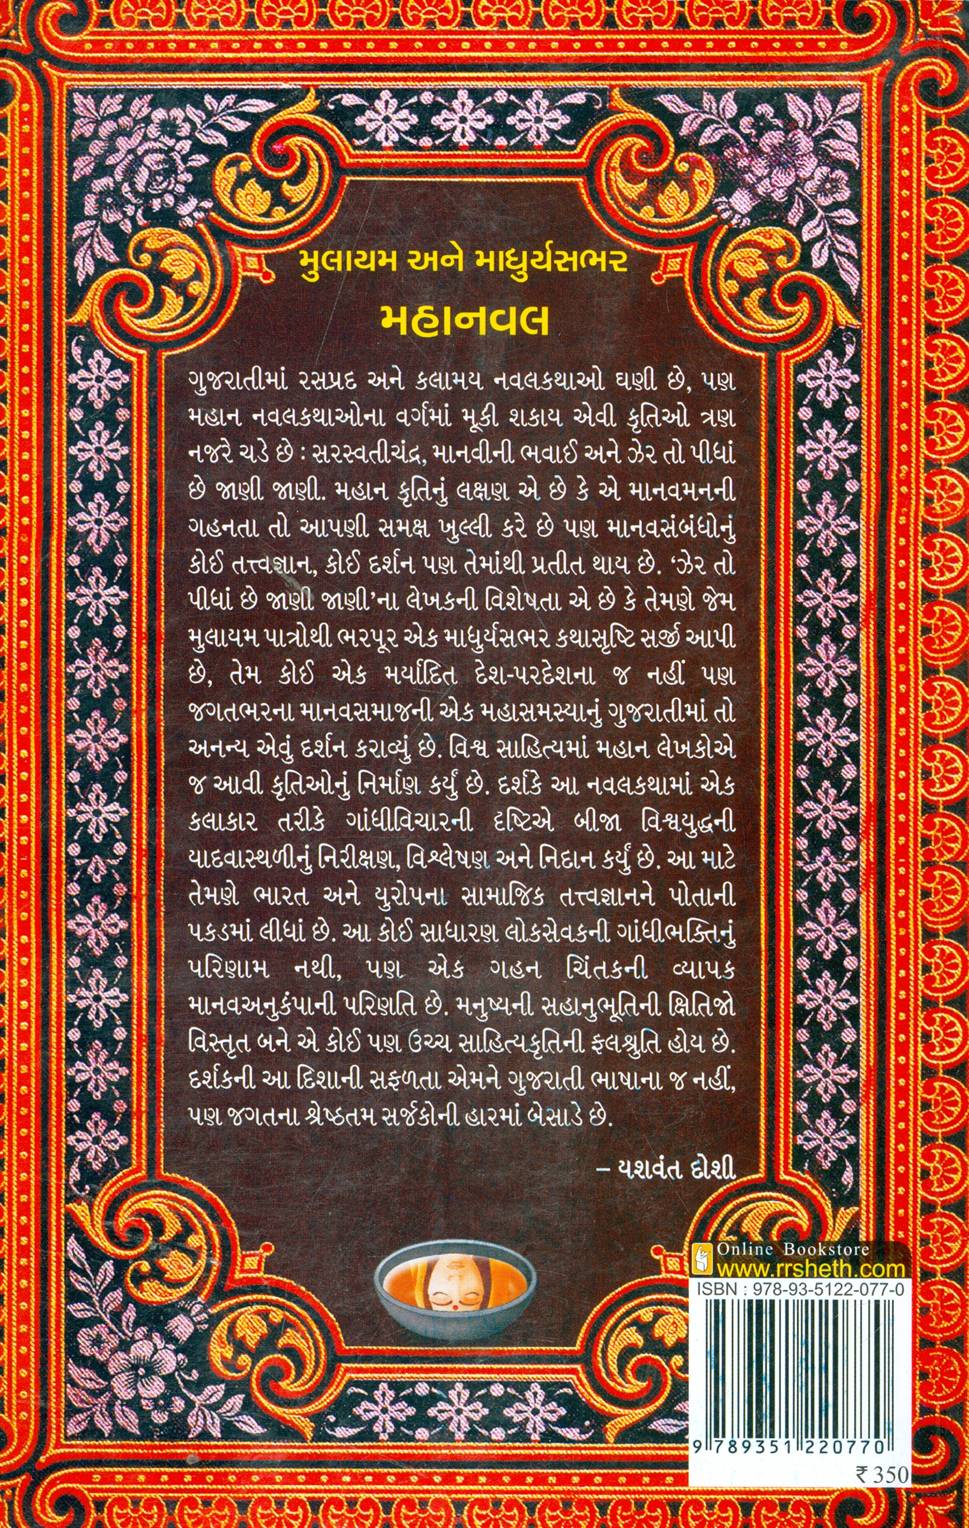 મુલાયમ અને માધુર્યસભર
મહાનવલ
ગુજરાતીમાં રસપ્રદ અને કલામય નવલકથાઓ ઘણી છે, પણ
મહાન નવલકથાઓના વર્ગમાં મૂકી શકાય એવી કૃતિઓ ત્રણ
નજરે ચડે છે : સરસ્વતીચંદ્ર, માનવીની ભવાઈ અને ઝેર તો પીધાં
છે જાણી જાણી. મહાન કૃતિનું લક્ષણ એ છે કે એ માનવમનની
ગહનતા તો આપણી સમક્ષ ખુલ્લી કરે છે પણ માનવસંબંધોનું
કોઈ તત્ત્વજ્ઞાન, કોઈ દર્શન પણ તેમાંથી પ્રતીત થાય છે. ‘ઝેર તો
પીધાં છે જાણી જાણી’ના લેખકની વિશેષતા એ છે કે તેમણે જેમ
મુલાયમ પાત્રોથી ભરપૂર એક માધુર્યસભર કથાસૃષ્ટિ સર્જી આપી
છે, તેમ કોઈ એક મર્યાદિત દેશ-પરદેશના જ નહીં પણ
જગતભરના માનવસમાજની એક મહાસમસ્યાનું ગુજરાતીમાં તો
અનન્ય એવું દર્શન કરાવ્યું છે. વિશ્વ સાહિત્યમાં મહાન લેખકોએ
જ આવી કૃતિઓનું નિર્માણ કર્યું છે. દર્શકે આ નવલકથામાં એક
કલાકાર તરીકે ગાંધીવિચારની દૃષ્ટિએ બીજા વિશ્વયુદ્ધની
યાદવાસ્થળીનું નિરીક્ષણ, વિશ્લેષણ અને નિદાન કર્યું છે. આ માટે
તેમણે ભારત અને યુરોપના સામાજિક તત્ત્વજ્ઞાનને પોતાની
પકડમાં લીધાં છે. આ કોઈ સાધારણ લોકસેવકની ગાંધીભક્તિનું
પરિણામ નથી, પણ એક ગહન ચિંતકની વ્યાપક
માનવઅનુકંપાની પરિણતિ છે. મનુષ્યની સહાનુભૂતિની ક્ષિતિજો
વિસ્તૃત બને એ કોઈ પણ ઉચ્ચ સાહિત્યકૃતિની ફલશ્રુતિ હોય છે.
દર્શકની આ દિશાની સફળતા એમને ગુજરાતી ભાષાના જ નહીં,
પણ જગતના શ્રેષ્ઠતમ સર્જકોની હારમાં બેસાડે છે.
– યશવંત દોશી
Online Bookstore
www.rrsheth.com
ISBN : 978-93-5122-077-0
9 789351 220770
₹ 350